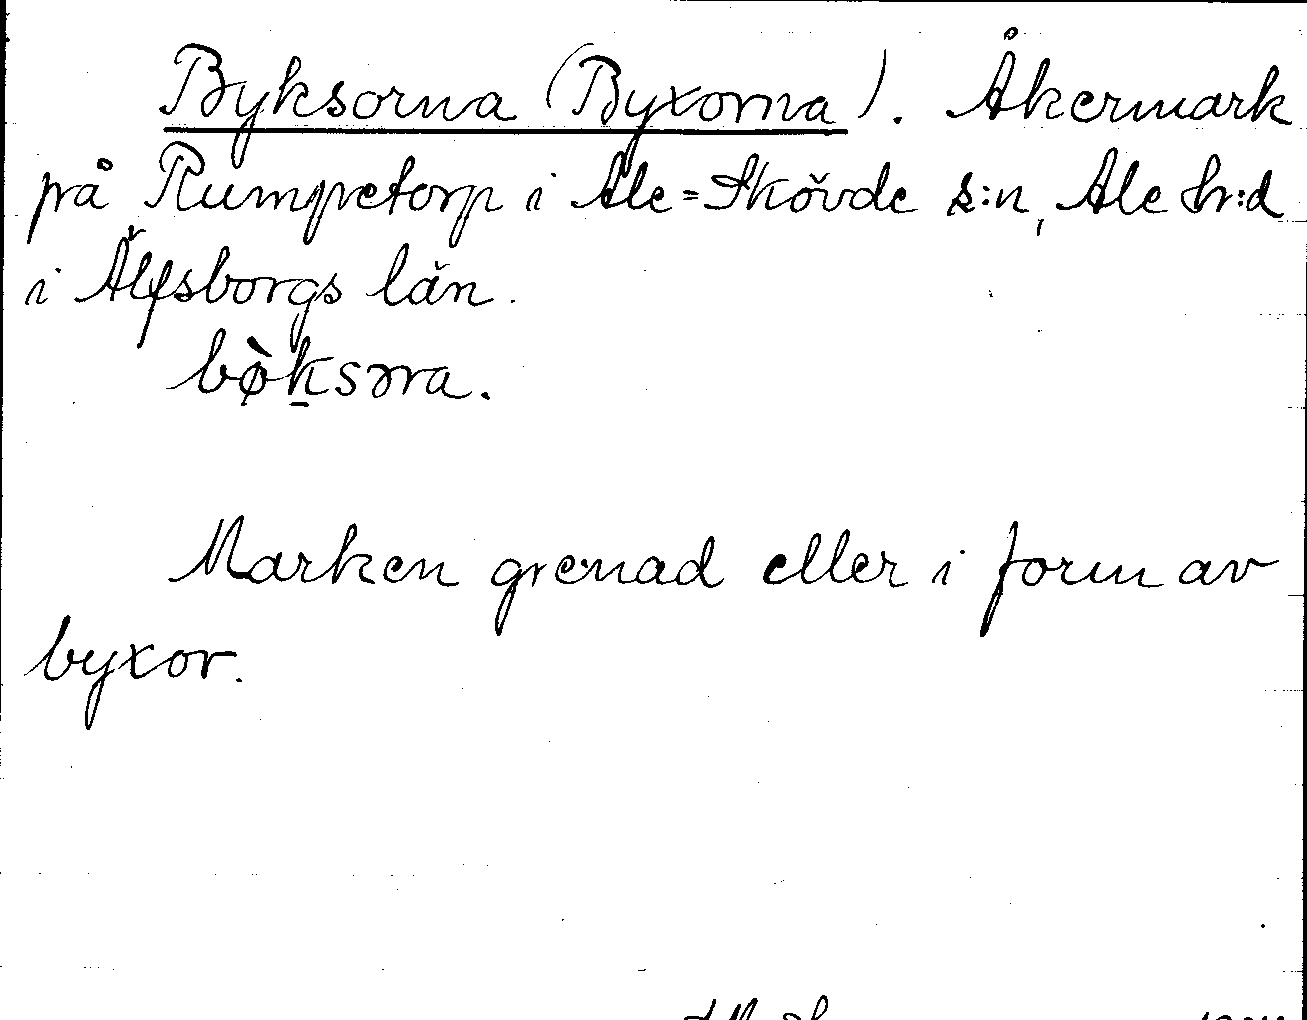 Byksorna (Byxorna). Åkermark
på Rumpetorp i Ale=Skövde s:n, Ale hr:d
i Älfsborgs län.
bø̀k̠sɔra.
Marken grenad eller i form av
byxor.